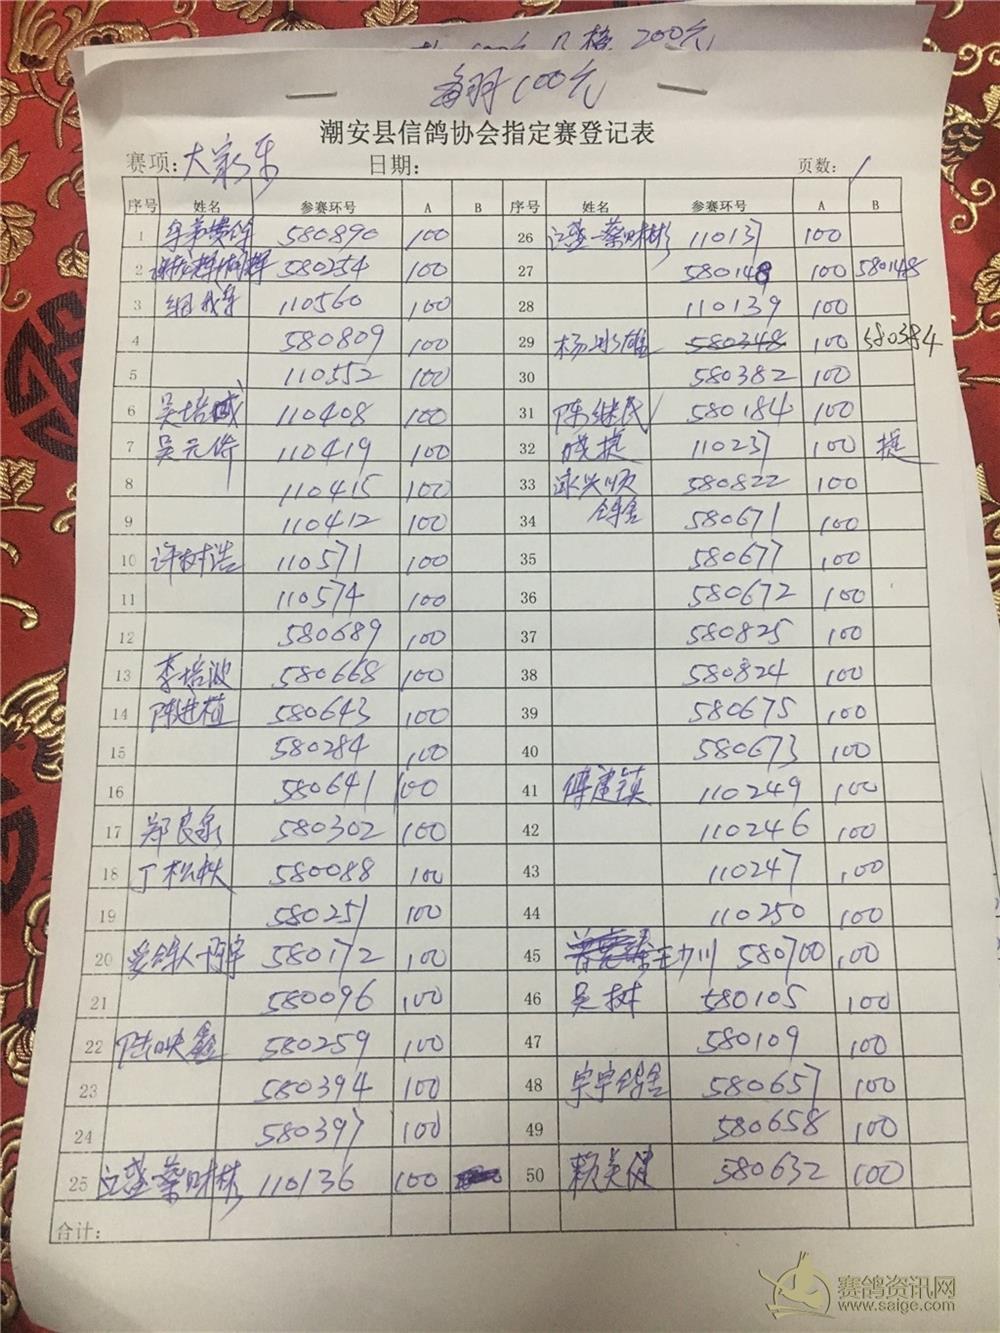 200元
每羽100元
潮安县信鸽协会指定赛登记表
赛项: 大家乐 日期: 页数: 1
序号 姓名 参赛环号 A B 序号 姓名 参赛环号 A B
1 580890 100 26 蔡财彬 110137 100
2 580254 100 27 580148 100 580148
3 110560 100 28 110139 100
4 580809 100 29 杨冰雄 580348 100 580384
5 110552 100 30 580382 100
6 吴培 110408 100 31 陈继民 580184 100
7 吴元 110419 100 32 捷 110237 100 捷
8 110415 100 33 永兴顺 580822 100
9 110412 100 34 鸽舍 580671 100
10 许树浩 110571 100 35 580677 100
11 110574 100 36 580672 100
12 580689 100 37 580825 100
13 李培波 580668 100 38 580824 100
14 陈进植 580643 100 39 580675 100
15 580284 100 40 580673 100
16 580641 100 41 傅建镇 110249 100
17 郑良泉 580302 100 42 110246 100
18 丁松 580088 100 43 110247 100
19 580251 100 44 110250 100
20 580172 100 45 王少川 580700 100
21 580096 100 46 吴树 580105 100
22 陆映鑫 580259 100 47 580109 100
23 580394 100 48 宇宇鸽舍 580657 100
24 580397 100 49 580658 100
25 蔡财彬 110136 100 50 赖美健 580632 100
合计:
赛鸽资讯网
www.saige.com